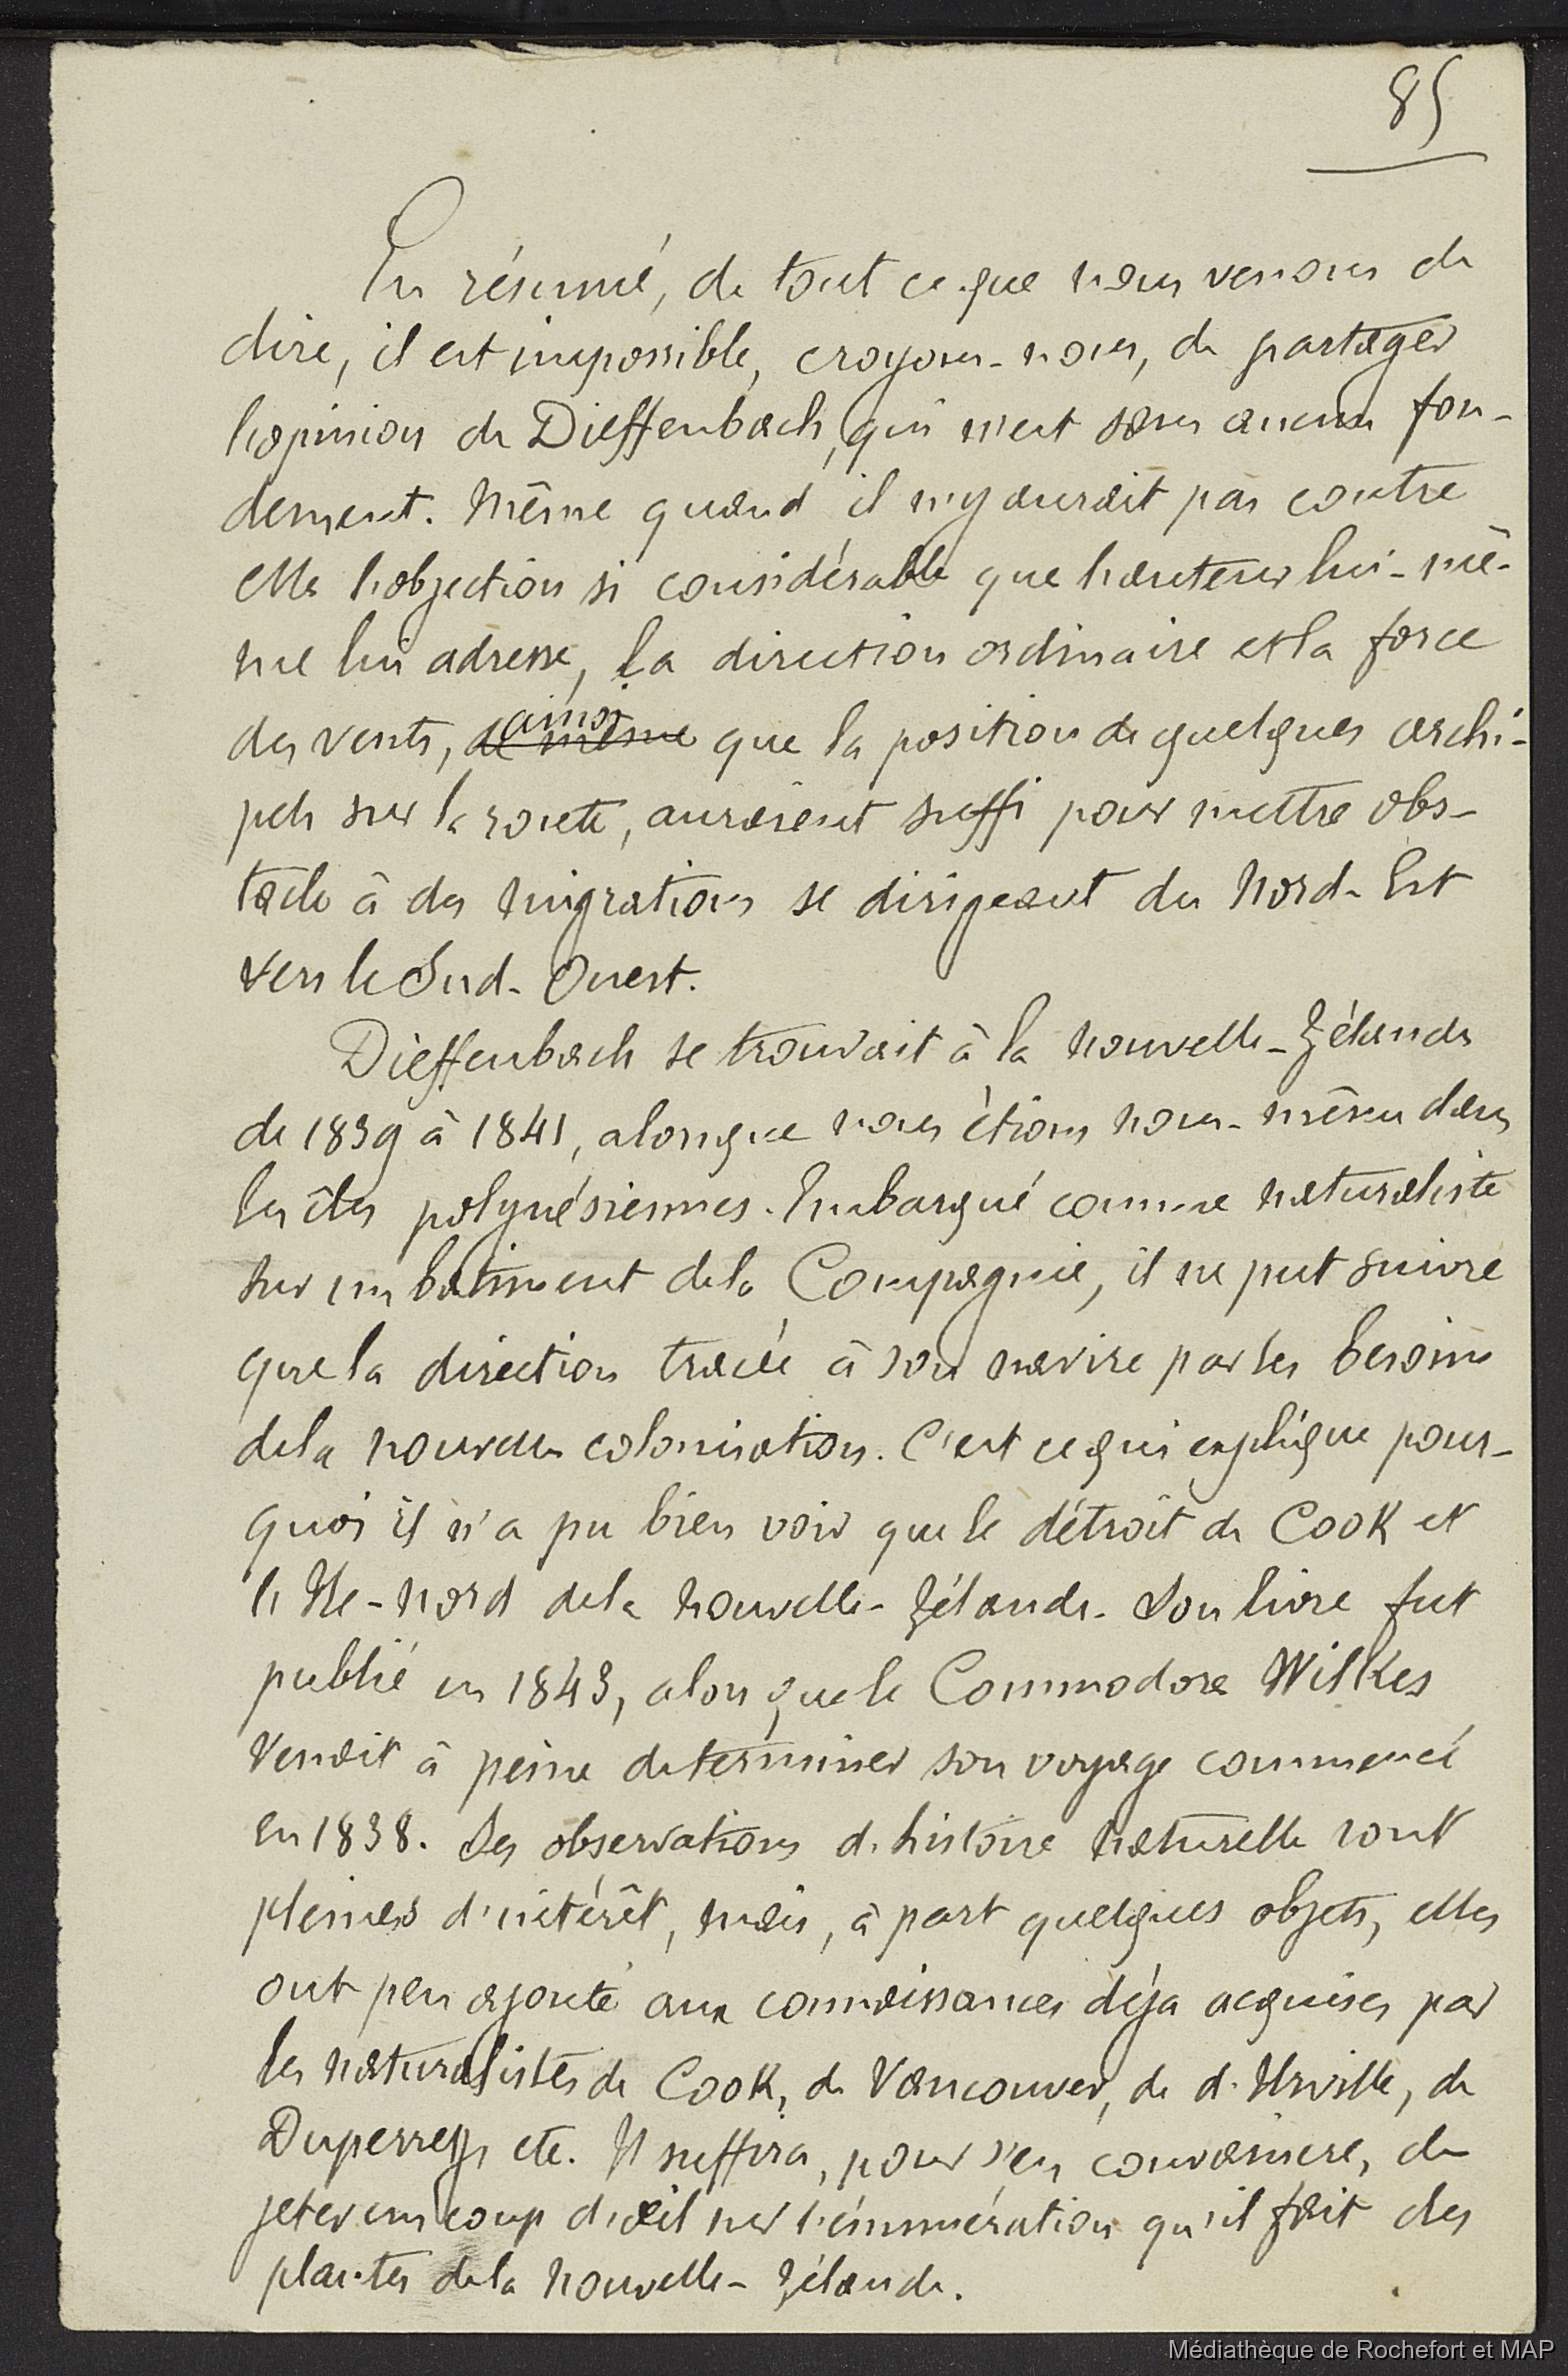 85
En résumé, de tout ce que nous venons de
dire, il est impossible, croyons-nous, de partager
l'opinion de Dieffenbach, qui n'est sans aucun fon-
dement. Même quand il n'y aurait pas contre
elle l'objection si considérable que l'auteur lui-mê-
me lui adresse, la direction ordinaire et la force
ainsi
des vents, de même que la position de quelques archi-
pels sur la route, auraient suffi pour mettre obs-
tacle à des migrations se dirigeant du Nord-Est
vers le Sud-Ouest.
Dieffenbach se trouvait à la Nouvelle-Zélande
de 1839 à 1841, alors que nous étions nous-même dans
les îles polynésiennes. Embarqué comme naturaliste
sur un bâtiment de la Compagnie, il ne put suivre
que la direction tracée à son navire par les besoins
de la nouvelle colonisation. C'est ce qui explique pour-
quoi il n'a pu bien voir que le détroit de Cook et
l'Ile-Nord de la Nouvelle-Zélande. Son livre fut
publié en 1843, alors que le Commodore Wilkes
venait à peine de terminer son voyage commencé
en 1838. Ses observations d'histoire naturelle sont
pleines d'intérêt, mais, à part quelques objets, elles
ont peu ajouté aux connaissances déja acquises par
les naturalistes de Cook, de Vancouver, de d'Urville, de
Duperrey, etc. Il suffira, pour s'en convaincre, de
jeter un coup d'œil sur l'énumération qu'il fait des
plantes de la Nouvelle-Zélande.
Médiathèque de Rochefort et MAP